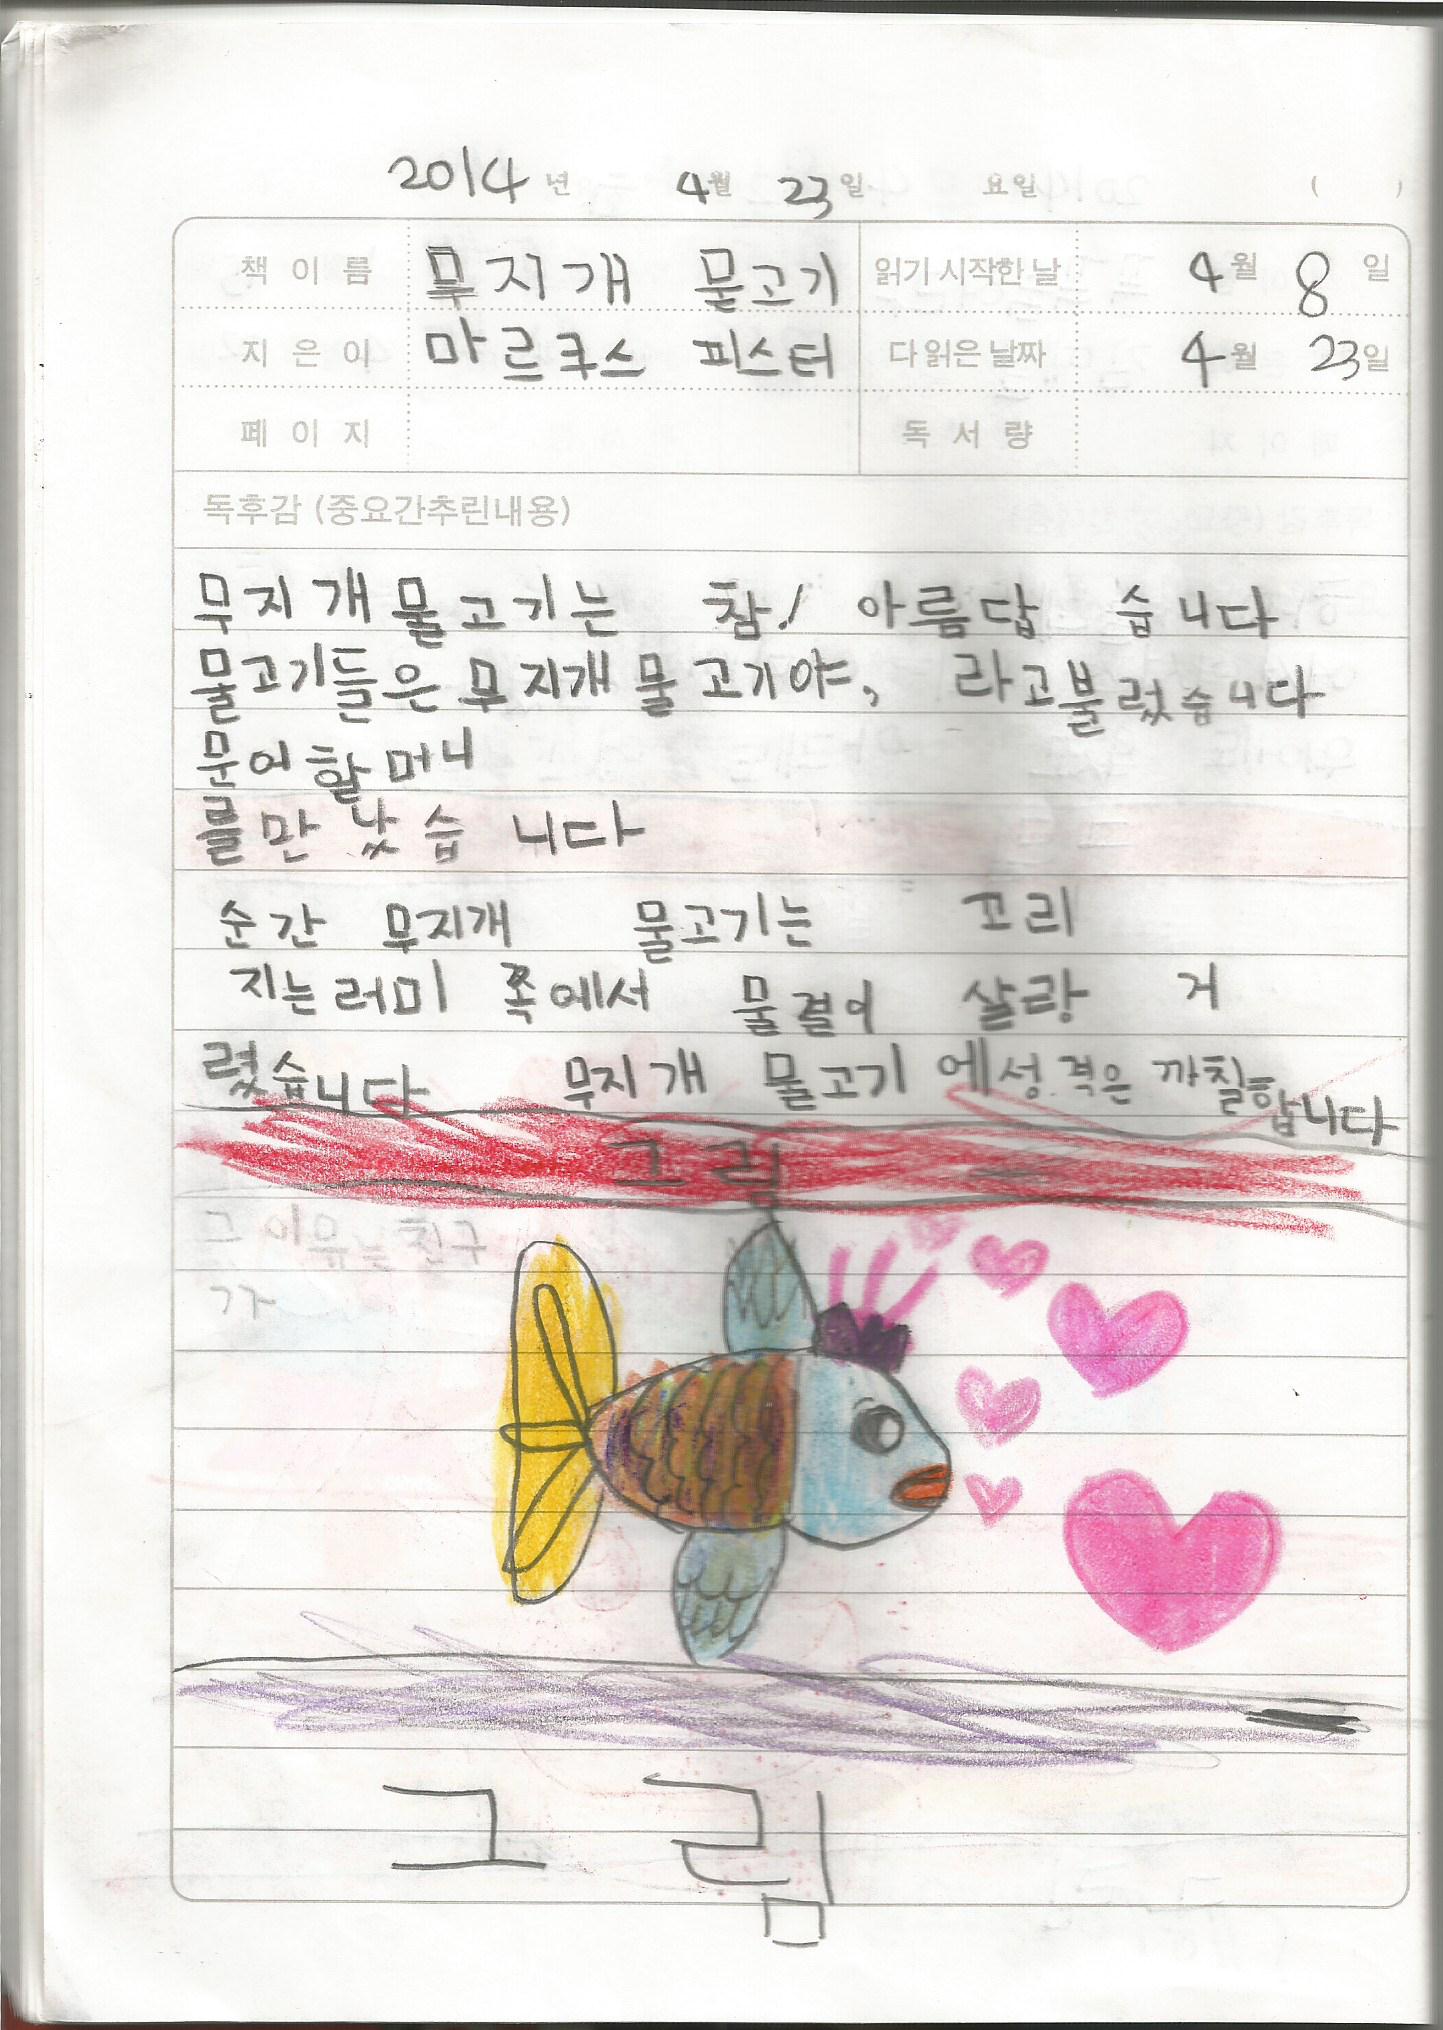 2014년 4월 23일 요일 ( )
책 이 름 무지개 물고기 읽기 시작한 날 4월 8일
지 은 이 마르쿠스 피스터 다 읽은 날짜 4월 23일
페 이 지 독 서 량
독후감 (중요간추린내용)
무지개물고기는 참! 아름답 습니다
물고기들은 무지개물고기야, 라고불렀습니다
문어할머니
를만났습 니다
순간 무지개 물고기는 꼬리
지는러미 쪽에서 물결이 살랑 거
렸습니다 무지개 물고기에성격은 까칠합니다
그림
그 이유는친구
가
그림